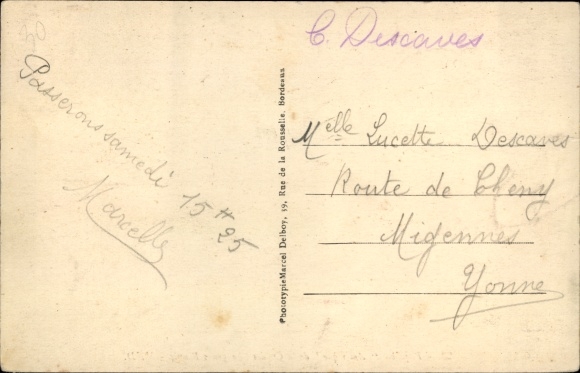 C. Descaves
Passerons samedi 15 H 25
Marcelle
Phototypie Marcel Delboy, 19, Rue de la Rousselle, Bordeaux
Melle Lucette Descaves
Route de Cheny
Migennes
Yonne